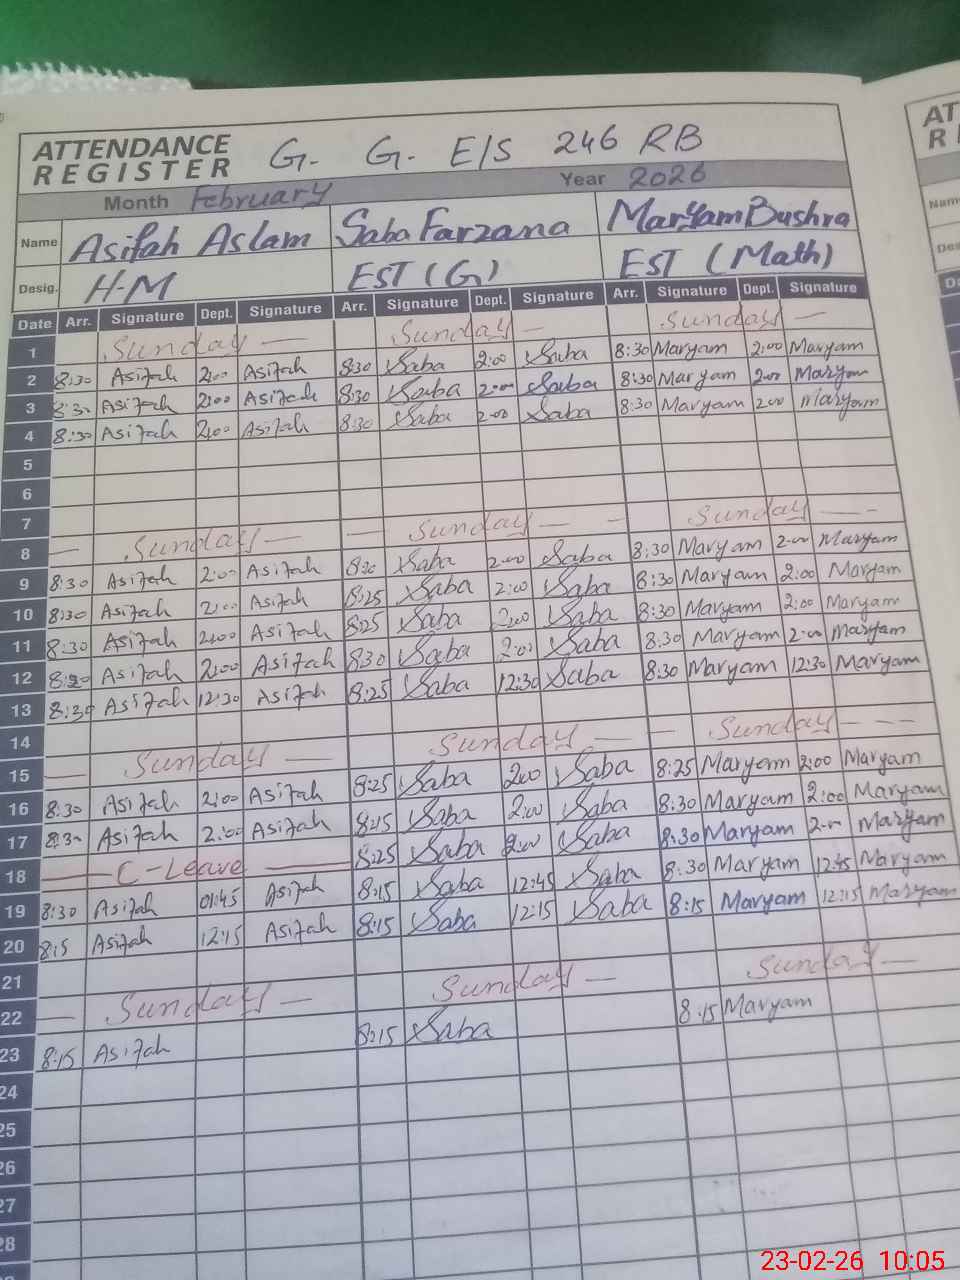 ATTENDANCE REGISTER G. G. E/S 246 RB
Month February Year 2026
Name Asifah Aslam Saba Farzana Maryam Bushra
Desig. H-M EST (G) EST (Math)
Date Arr. Signature Dept. Signature Arr. Signature Dept. Signature Arr. Signature Dept. Signature
1 Sunday — Sunday — Sunday —
2 8:30 Asifah 2:00 Asifah 8:30 Saba 2:00 Saba 8:30 Maryam 2:00 Maryam
3 8:30 Asifah 2:00 Asifah 8:30 Saba 2:00 Saba 8:30 Maryam 2:00 Maryam
4 8:30 Asifah 2:00 Asifah 8:30 Saba 2:00 Saba 8:30 Maryam 2:00 Maryam
5
6
7
8 — Sunday — — Sunday — — Sunday — -
9 8:30 Asifah 2:00 Asifah 8:30 Saba 2:00 Saba 8:30 Maryam 2:00 Maryam
10 8:30 Asifah 2:00 Asifah 8:25 Saba 2:00 Saba 8:30 Maryam 2:00 Maryam
11 8:30 Asifah 2:00 Asifah 8:25 Saba 2:00 Saba 8:30 Maryam 2:00 Maryam
12 8:20 Asifah 2:00 Asifah 8:30 Saba 2:00 Saba 8:30 Maryam 2:00 Maryam
13 8:30 Asifah 12:30 Asifah 8:25 Saba 12:30 Saba 8:30 Maryam 12:30 Maryam
14
15 — Sunday — Sunday — — Sunday - - -
16 8:30 Asifah 2:00 Asifah 8:25 Saba 2:00 Saba 8:25 Maryam 2:00 Maryam
17 8:30 Asifah 2:00 Asifah Saba 2:00 Saba 8:30 Maryam 2:00 Maryam
18 — C-Leave — 8:25 Saba 2:00 Saba 8:30 Maryam 2:00 Maryam
19 8:30 Asifah 01:45 Asifah 8:15 Saba 12:45 Saba 8:30 Maryam 12:45 Maryam
20 8:15 Asifah 12:15 Asifah 8:15 Saba 12:15 Saba 8:15 Maryam 12:15 Maryam
21
22 — Sunday — Sunday — Sunday —
23 8:15 Asifah 8:15 Saba 8:15 Maryam
24
25
26
27
28
AT
R
Nam
Des
D
23-02-26 10:05